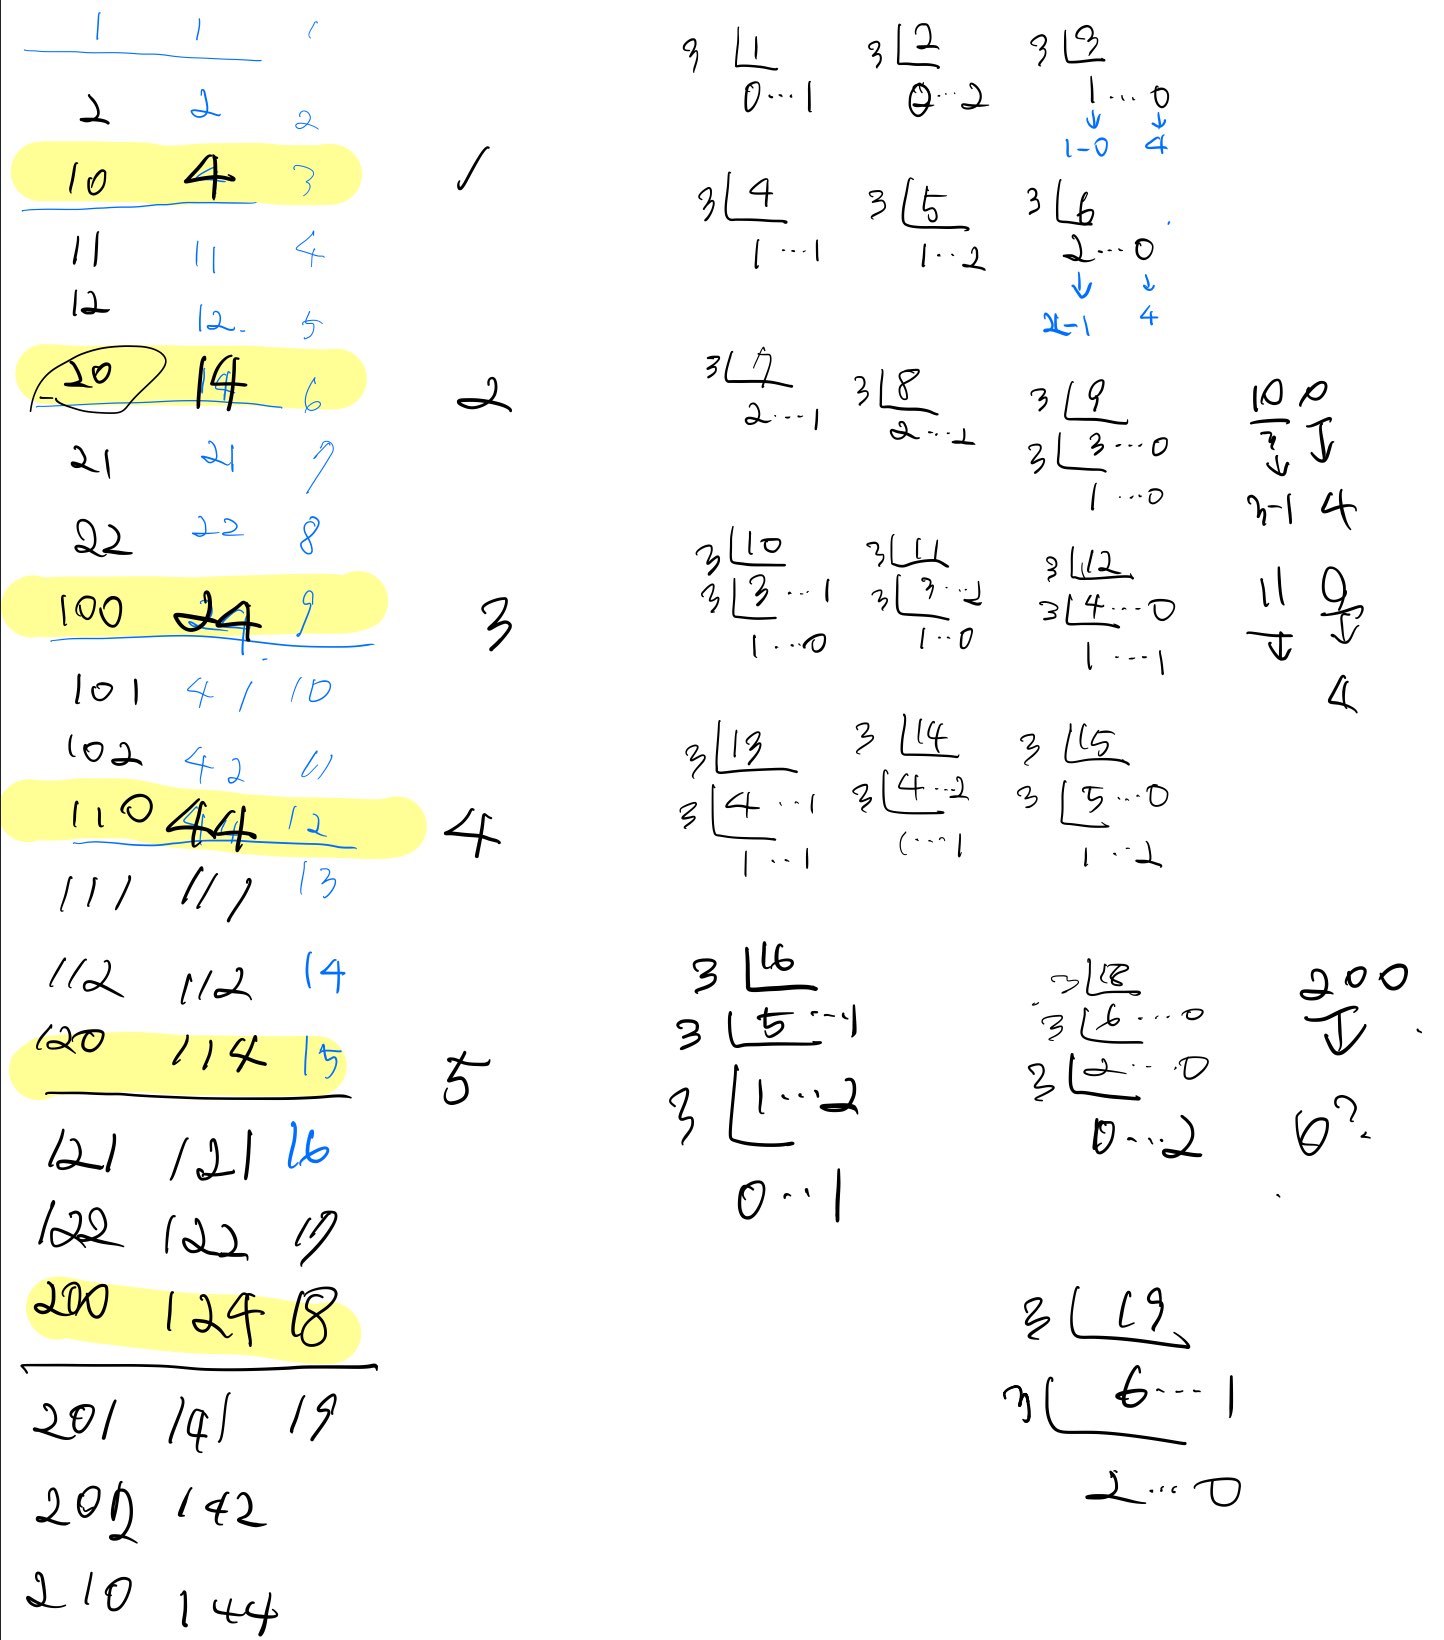 1 1 1
2 2 2
10 4 3
11 11 4
12 12. 5
20 14 6
21 21 7
22 22 8
100 24 9
101 41 10
102 42 11
110 44 12
111 111 13
112 112 14
120 114 15
121 121 16
122 122 17
200 124 18
201 141 19
202 142
210 144
1
2
3
4
5
3 1
0...1
3 2
0...2
3 3
1...0
↓ ↓
1-0 4
3 4
1...1
3 5
1...2
3 6
2...0
↓ ↓
2-1 4
3 7
2...1
3 8
2...2
3 9
3 3...0
1...0
10 0
3 ↓
↓
3-1 4
3 10
3 3...1
1...0
3 11
3 3...2
1...0
3 12
3 4...0
1...1
11 0
↓ ↓
4
3 13
3 4...1
1...1
3 14
3 4...2
1...1
3 15
3 5...0
1...2
3 16
3 5...1
3 1...2
0...1
3 18
3 6...0
3 2...0
0...2
200
↓
6?
3 19
3 6...1
2...0